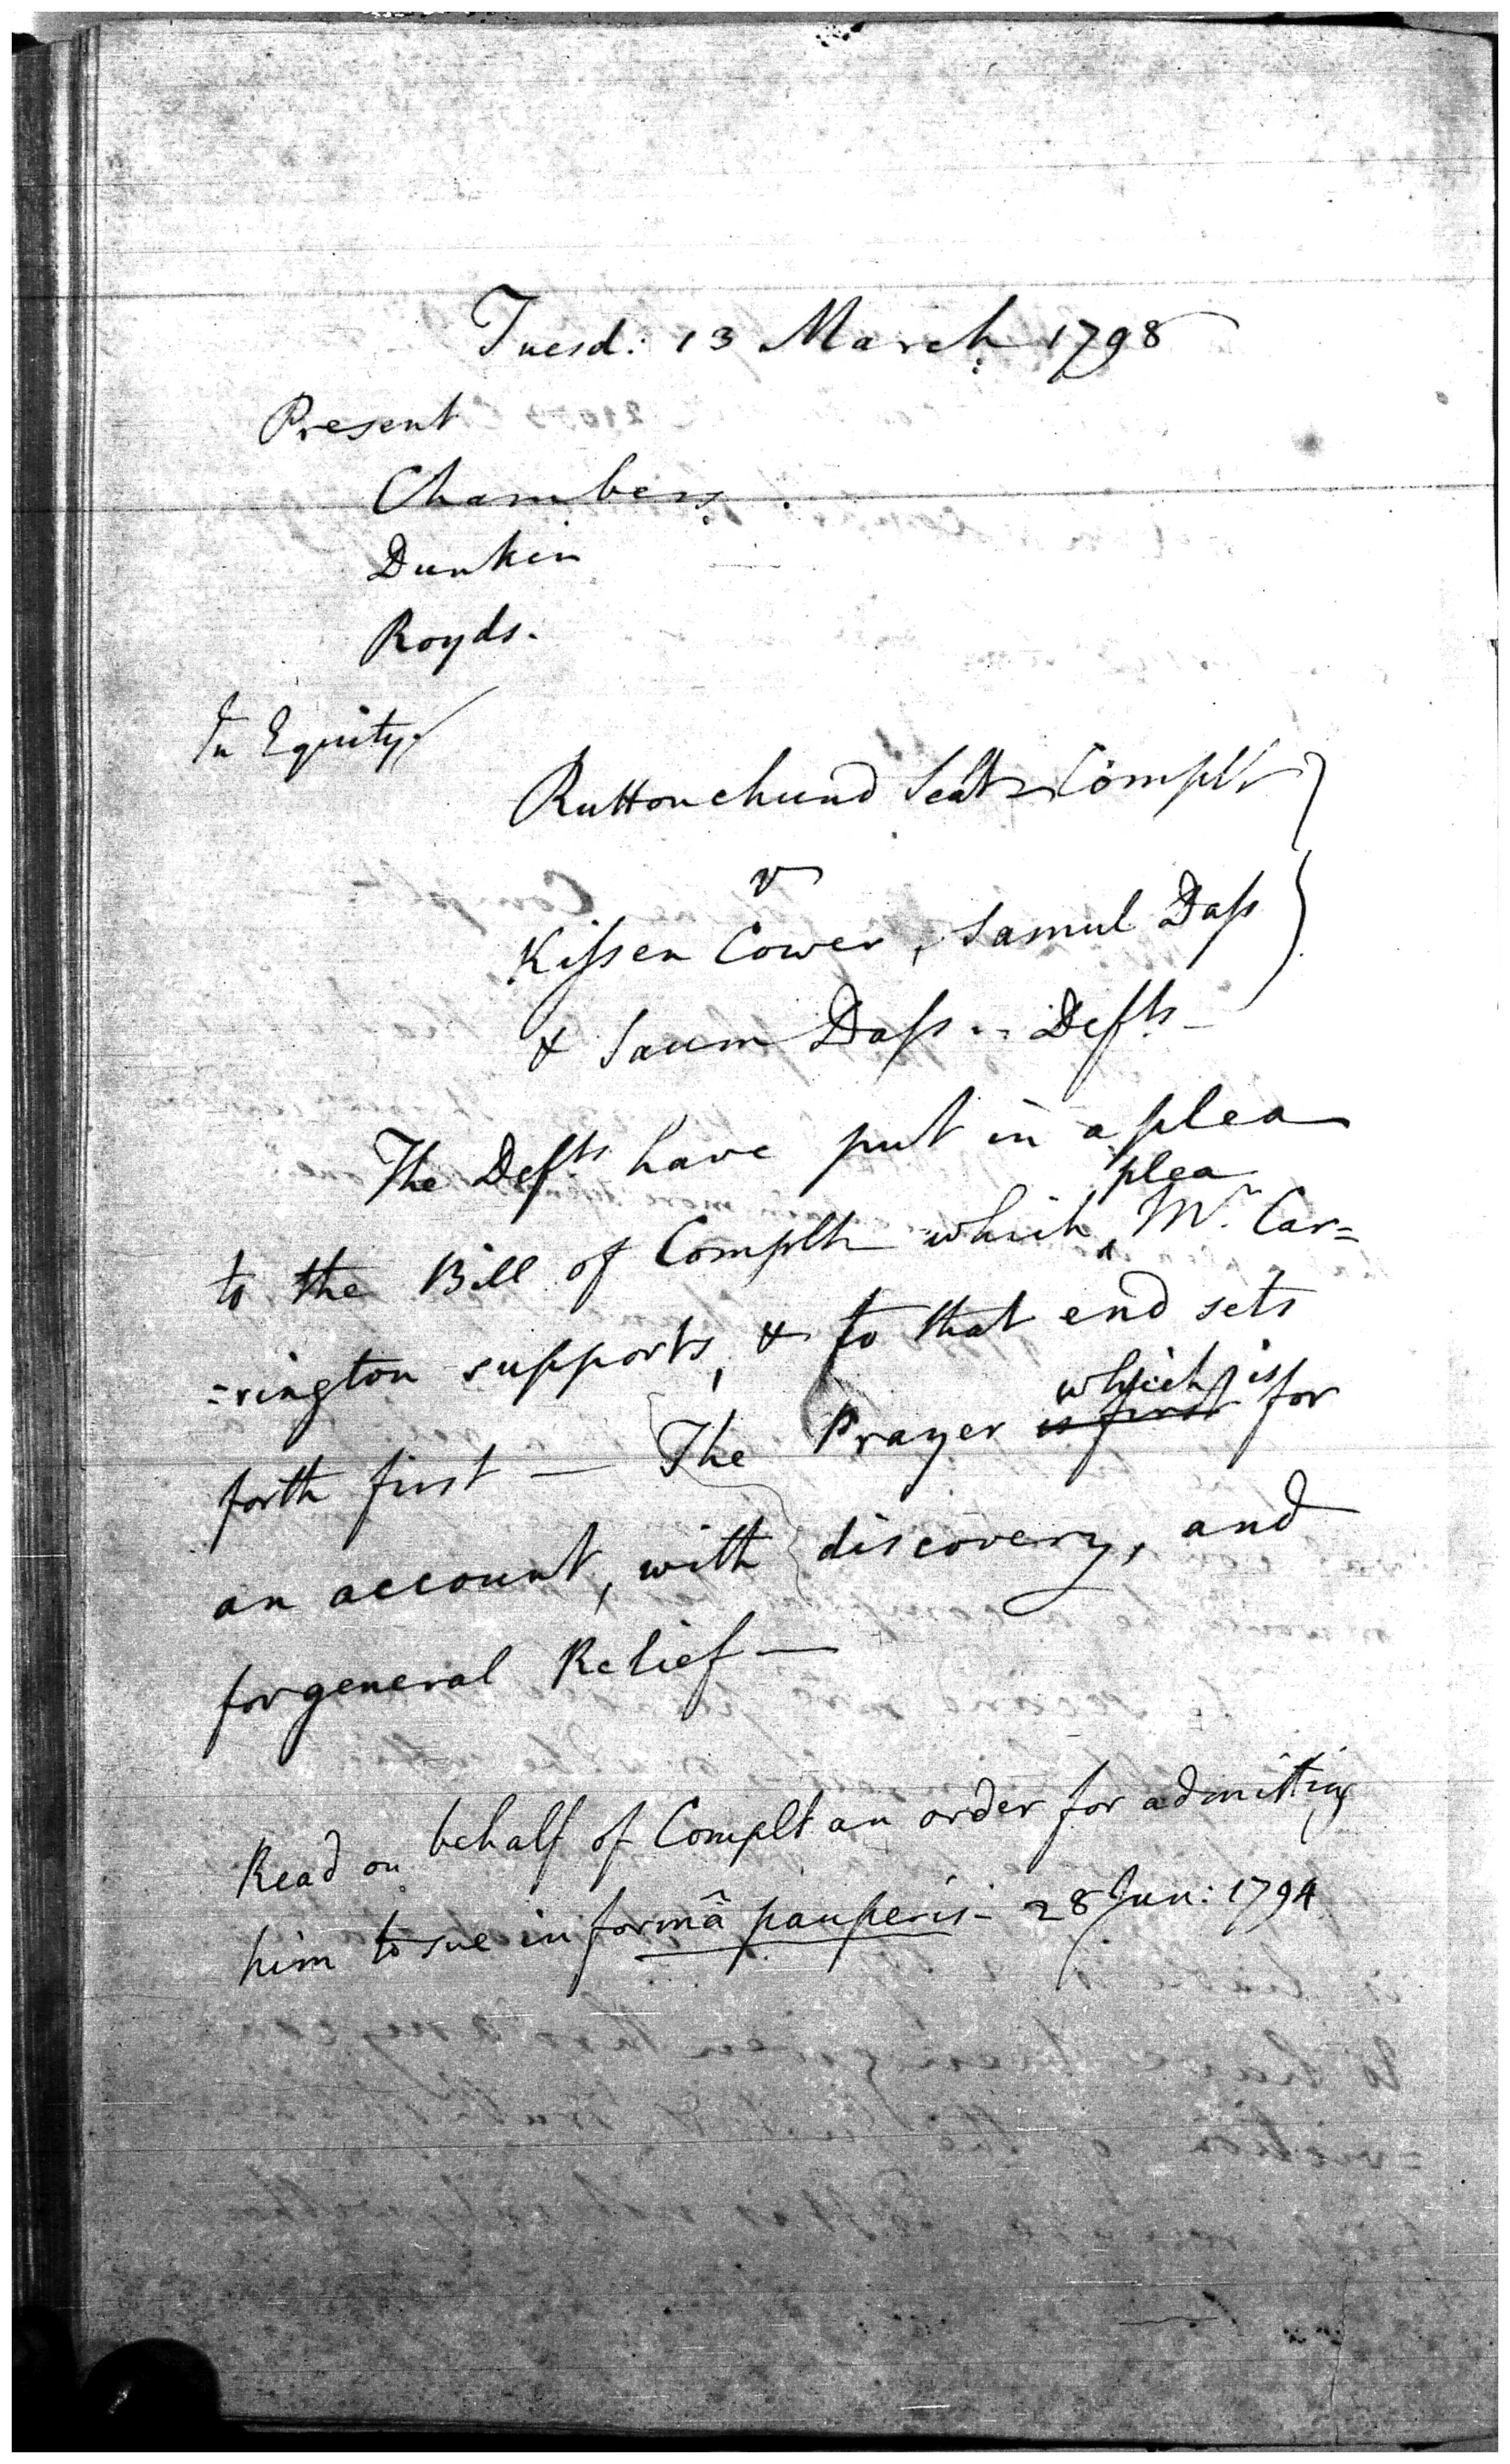 Tuesd: 13 March 1798
Present
Chambers
Dunkin
Royds.
In Equity
Ruttonchund Seat Complt
v
Kissen Cower, Samul Dass
& Saum Dass .. Defts
The Defts have put in a plea
plea
to the Bill of Complt which ^ Mr. Car=
=rington supports, & to that end sets
which is
forth first — The Prayer is first for
an account, with discovery, and
for general Relief —
Read on behalf of Complt an order for admitting
him to sue in formâ pauperis - 28 Jun: 1794